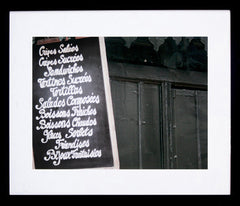 Crêpes Salées
Crêpes Sucrées
Sandwiches
Tartines Sucrées
Tortillas
Salades Composées
Boissons Fraîches
Boissons Chaudes
Glaces Sorbets
Friandises